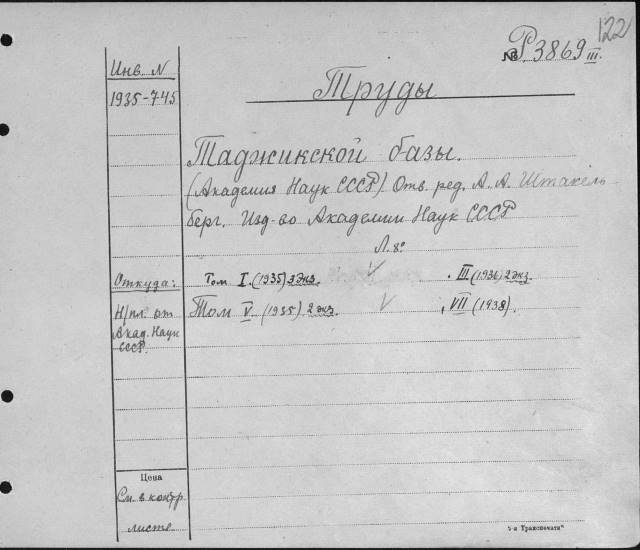 122
№ Р 3869 III.
Инв. N
1935-745
Труды
Таджикской базы.
(Академия Наук СССР) Отв. ред. А. А. Штакель
берг. Изд-во Академии Наук СССР
Л. 8º
Откуда:
Том I. (1935) 3 экз.
III (1936) 2 экз.
Н/пл. от
Акад. Наук
СССР.
Том V (1935) 2 экз.
VII (1938).
Цена
См. в контр.
листе
"я Транспечати"